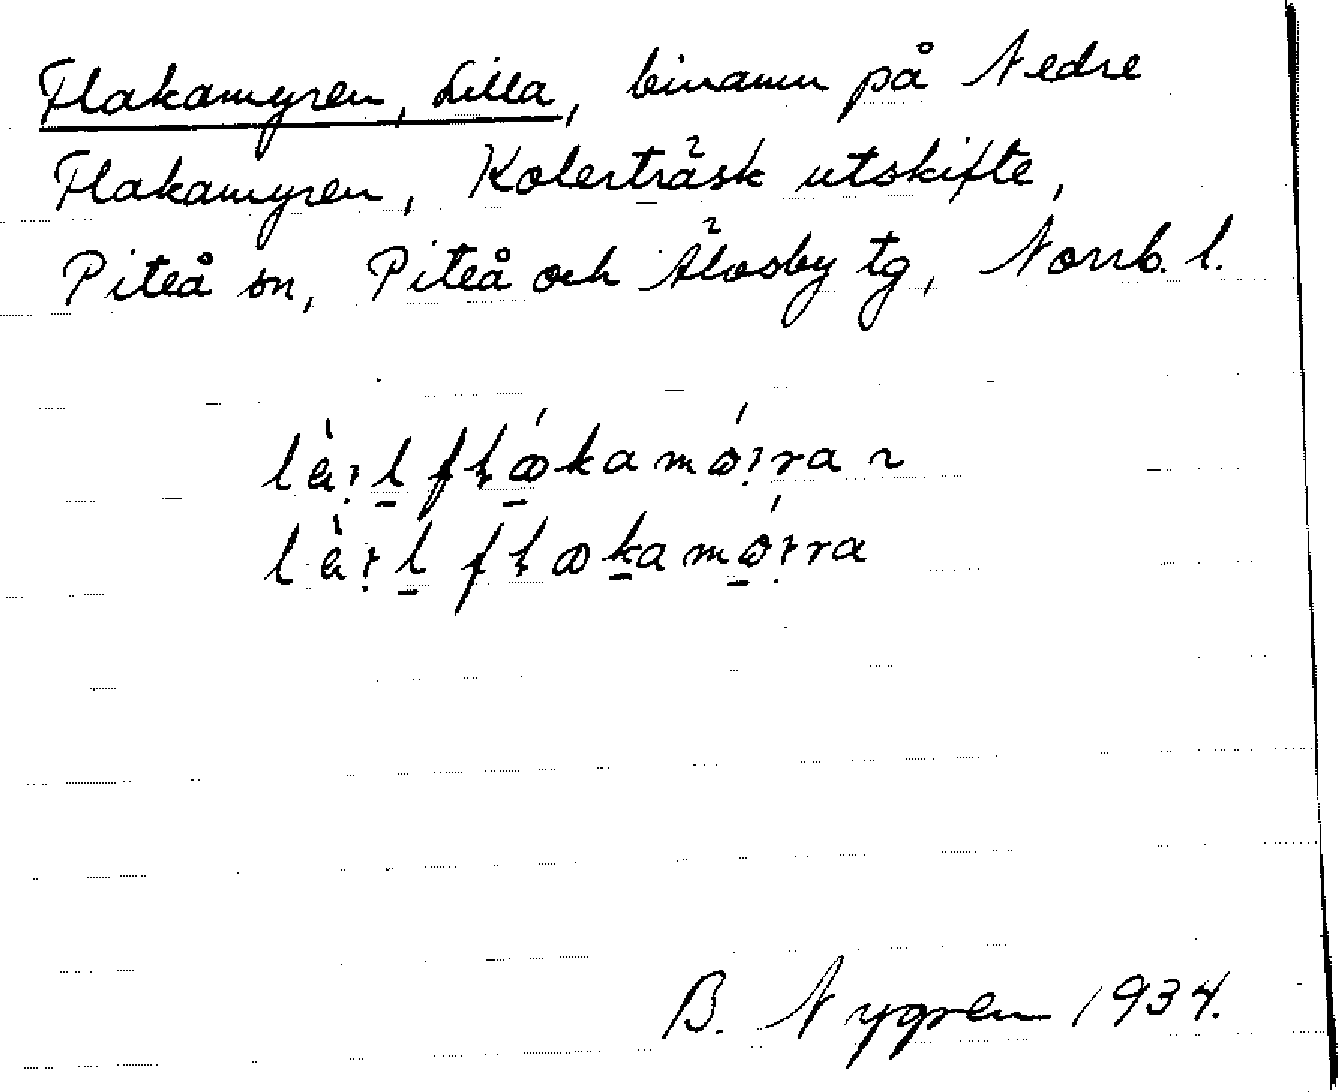 Flakamyren, Lilla, binamn på Nedre
Flakamyren, Kolerträsk utskifte,
Piteå sn, Piteå och Älvsby tg, Norrb. l.
B. Nygren 1934.